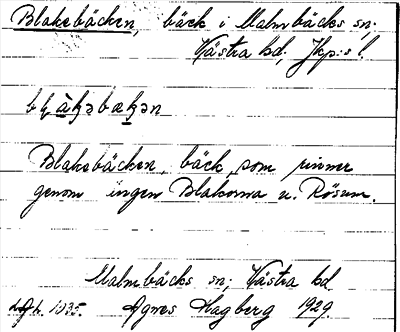 Blakebäcken, bäck i Malmbäcks sn;
Västra hd, Jkp:s l.
Blakebäcken, bäck, som rinner
genom ängen Blakorna u. Rösum.
Malmbäcks sn; Västra hd
1935. Agnes Hagberg 1929.